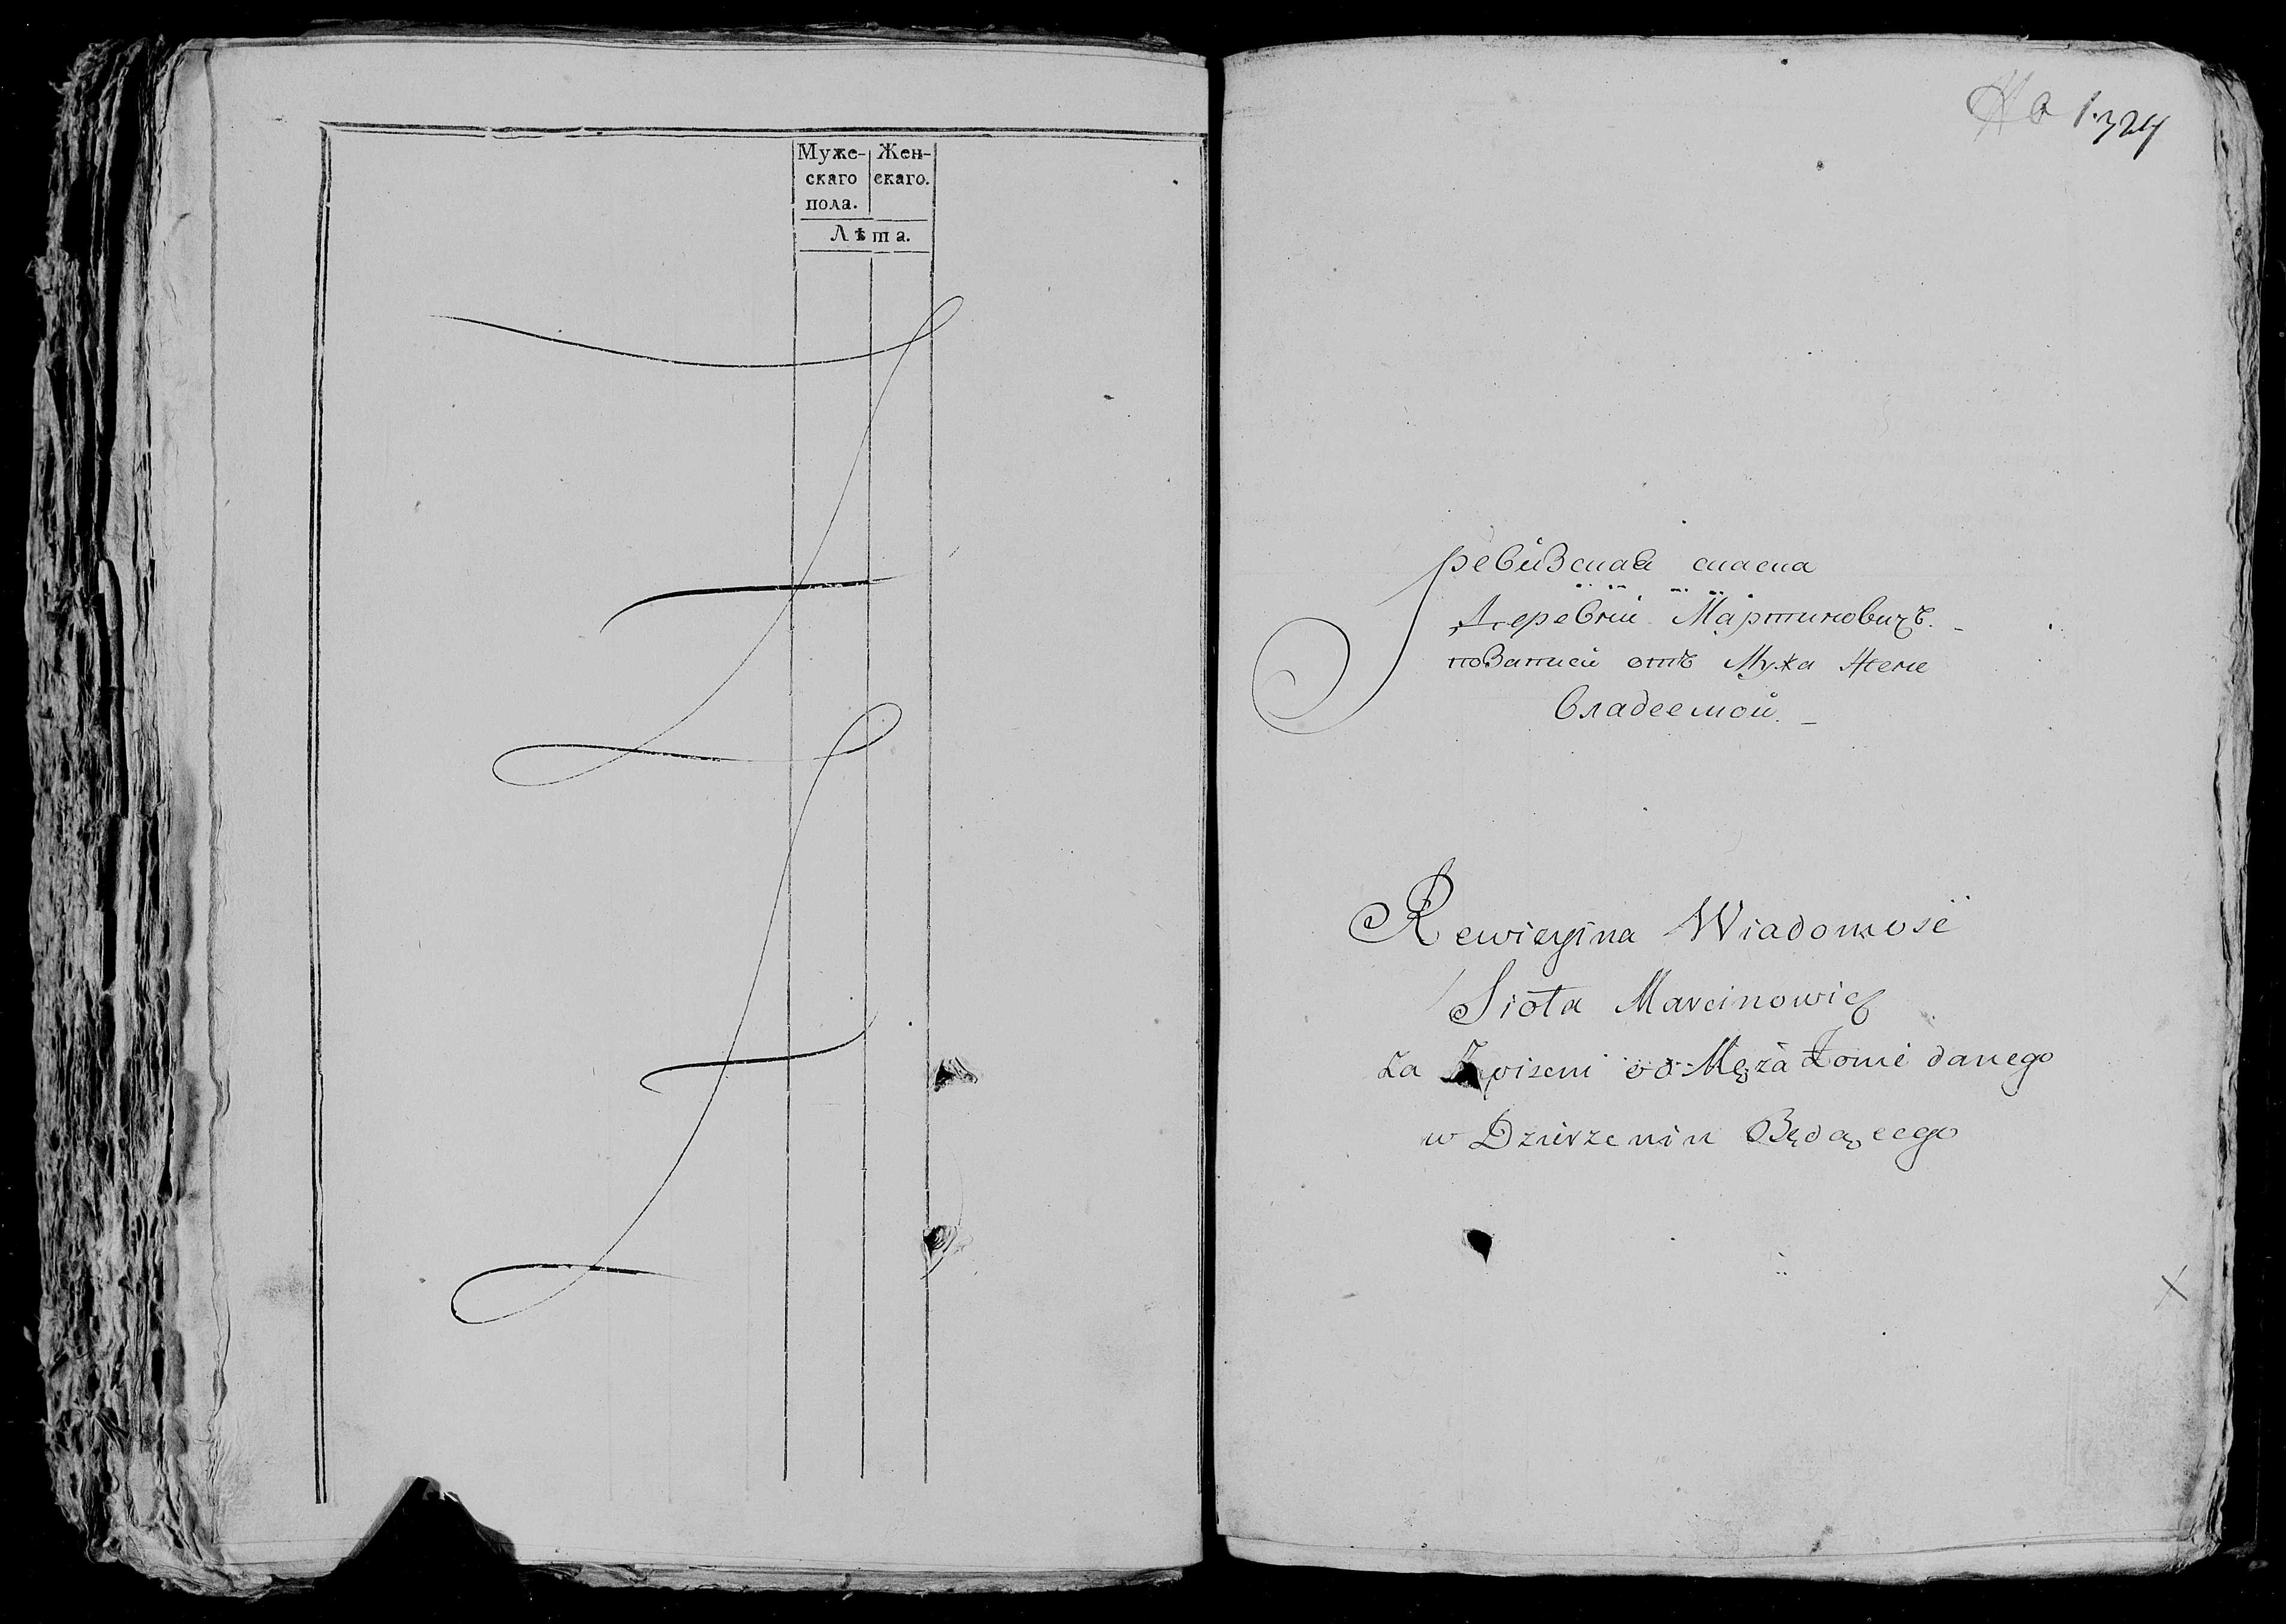 Муже- Жен-
скаго скаго.
пола.
Лѣта.
324
ревизская
деревни Мартиновичъ.
отъ Мужа Жене
владеемой.
Rewizyina Wiadomosć
Sioła Marcinowicz
Za Zapisem od Męża Żonie danego
w Dzierżeniu Będącego